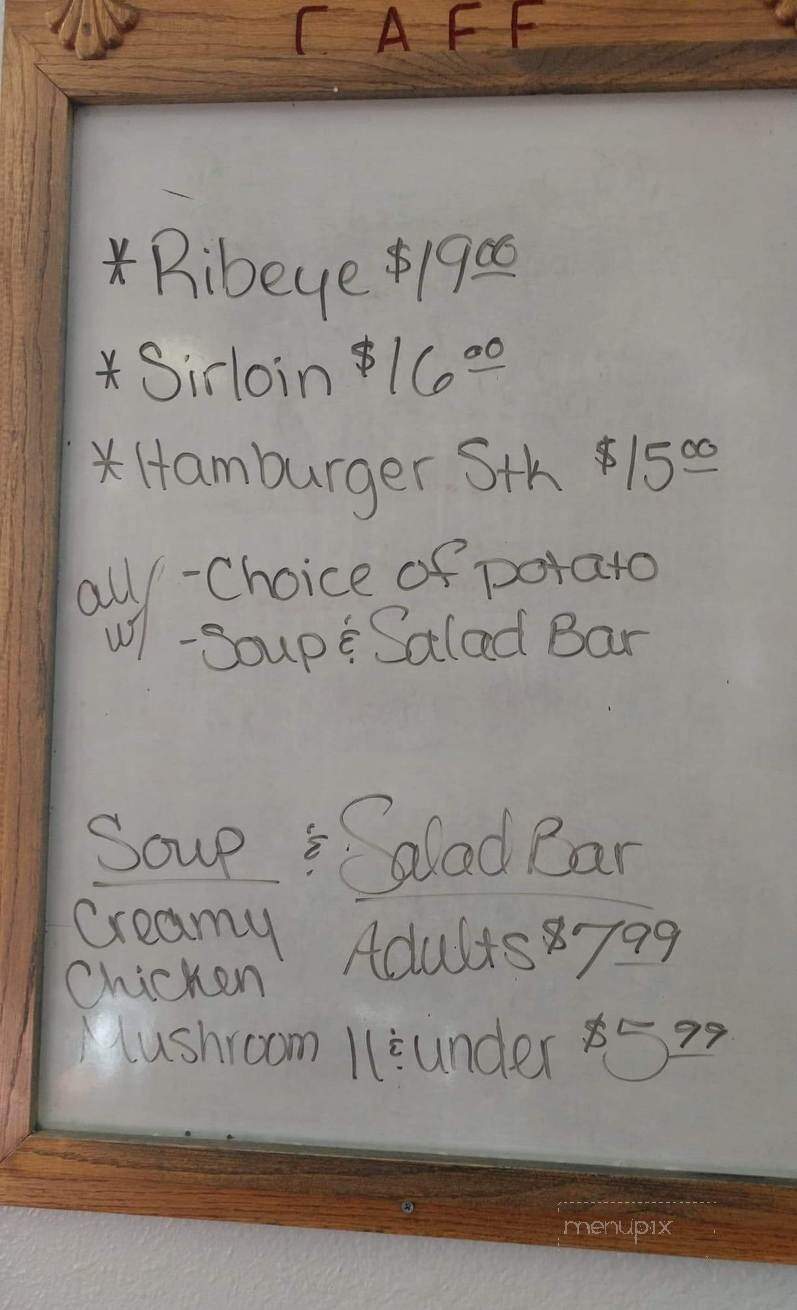 CAFE
*Ribeye $19.00
*Sirloin $16.00
*Hamburger Stk $15.00
all w/ -Choice of potato
-Soup & Salad Bar
Soup & Salad Bar
Creamy
Chicken
Mushroom
Adults $7.99
11 & under $5.99
menupix